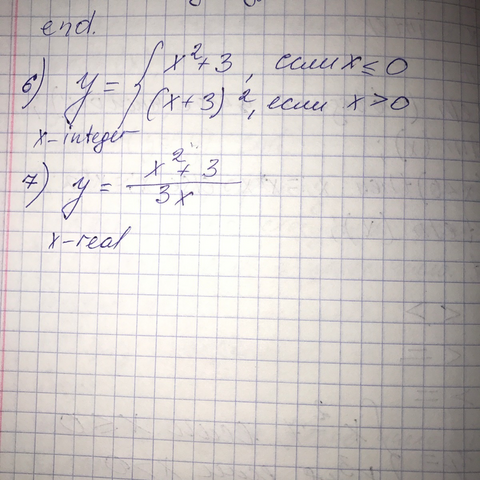 end.
6) y = { x²+3, если x ≤ 0
(x+3)², если x > 0
x-integer
7) y = x²+3
3x
x-real